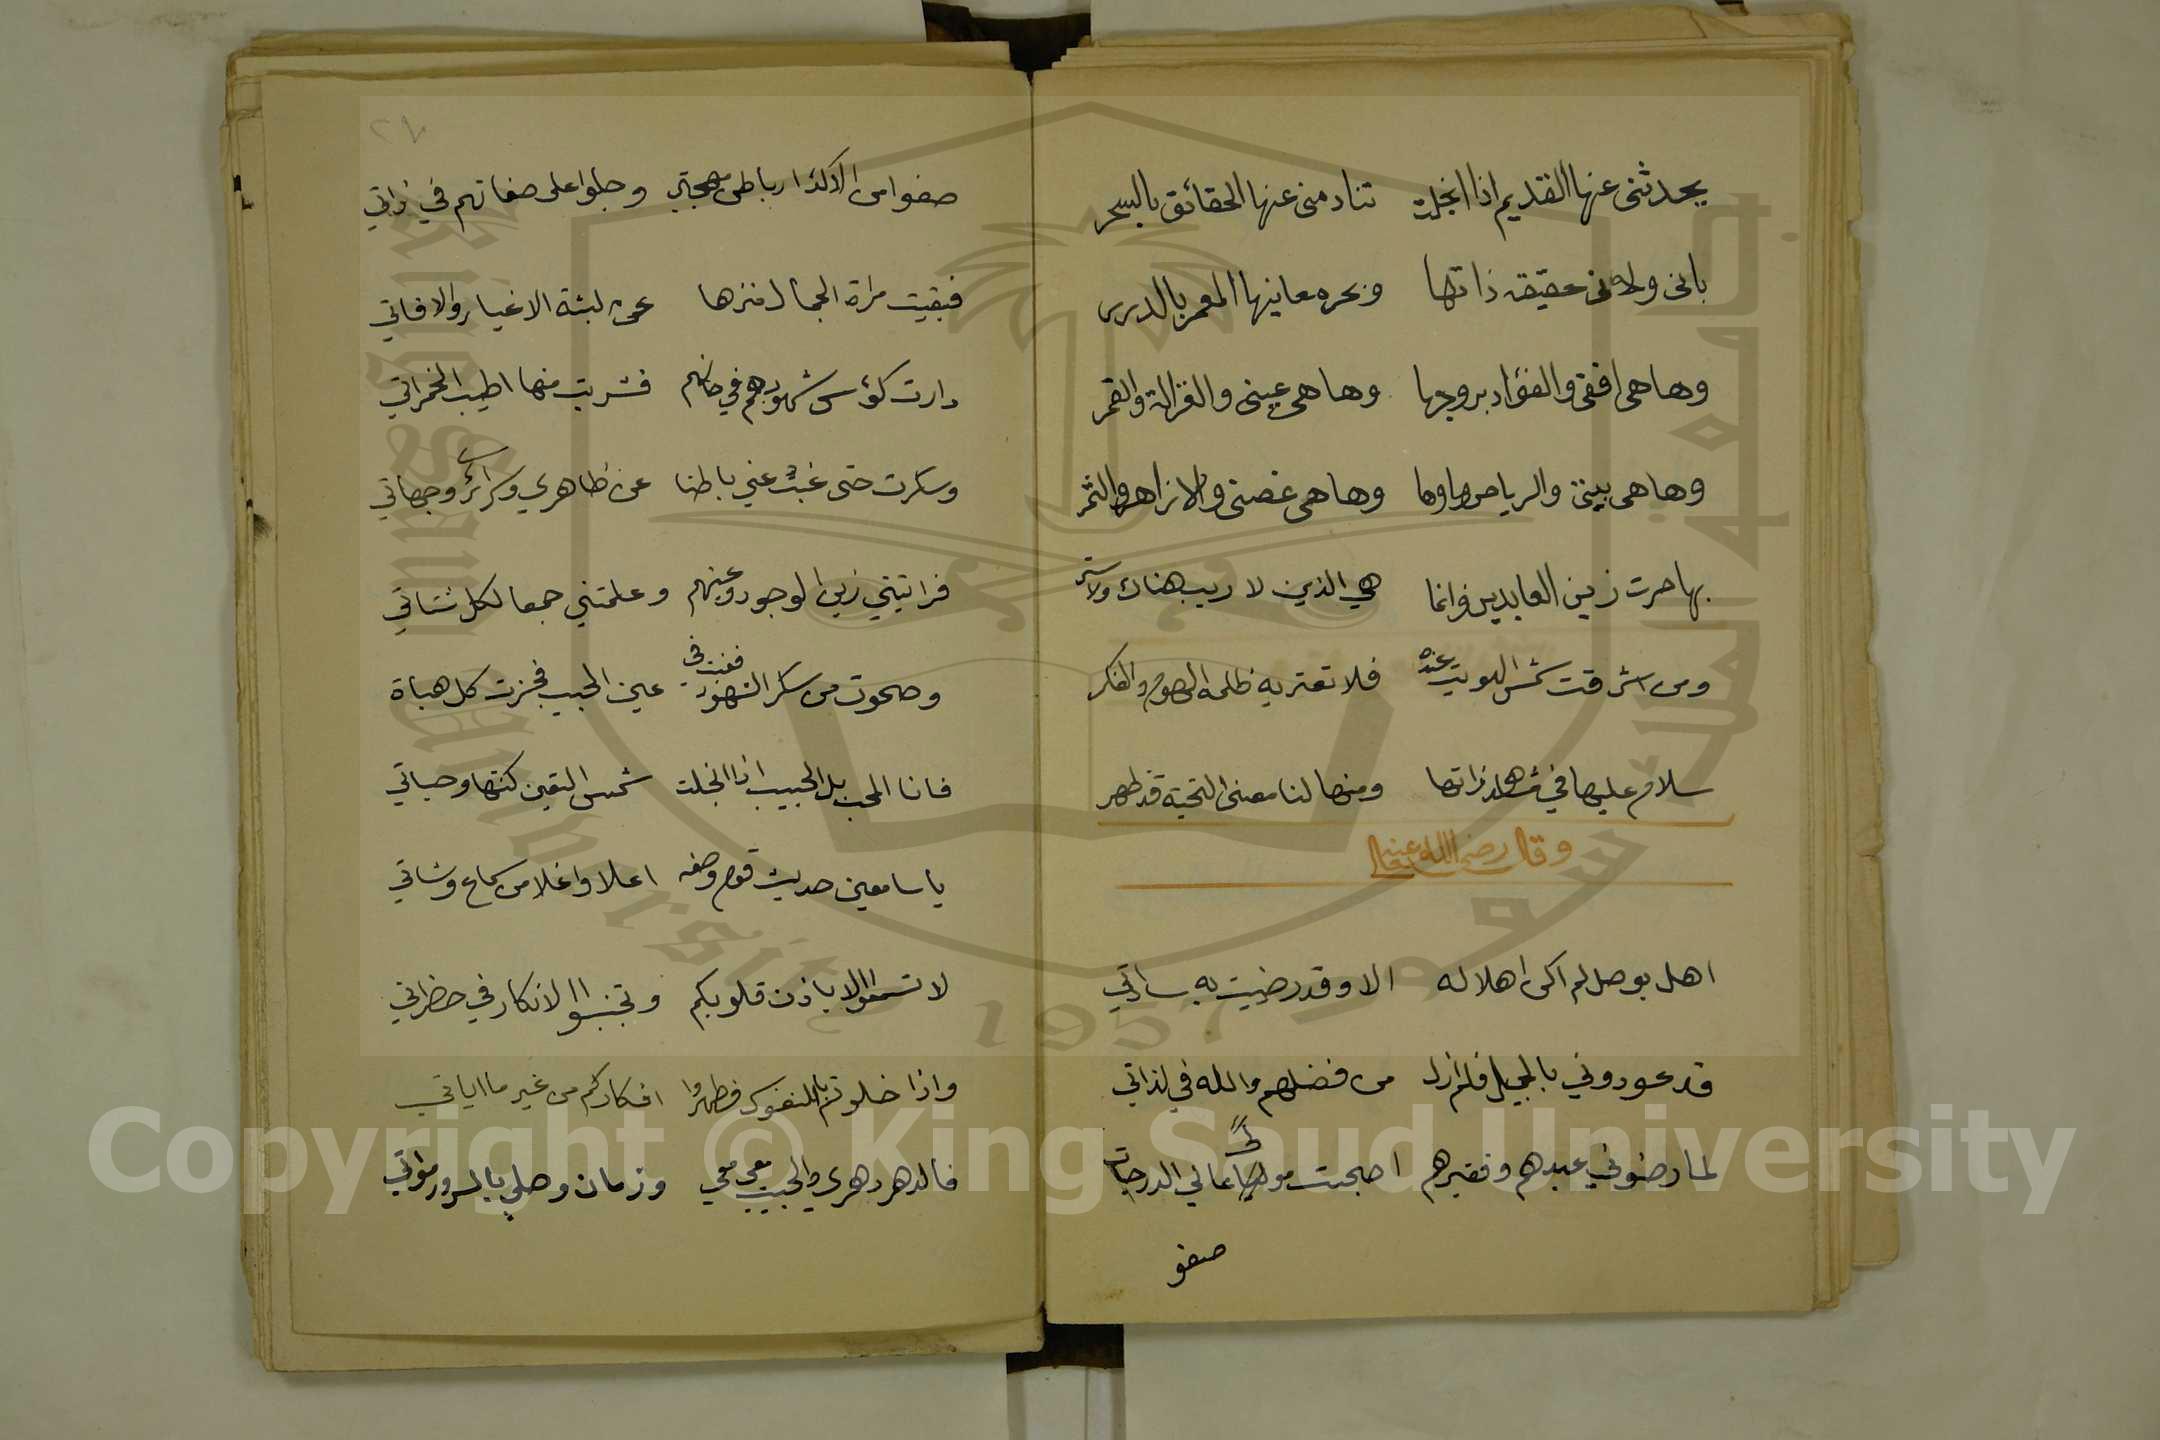 يحدثني عنها القديم اذا انجلت تنادمني عنها الحقائق بالسحر
باني ولاني حقيقه ذاتها وبحره معانيها المعمر بالدرر
وها هي افقي والفؤاد بروجها وها هي عيني والغزالة والقمر
وها هي بيتي والرياض وماوها وها هي غصني والازاهر والثمر
بها صرت زين العابدين وانما هي الذين لا ريب هناك ولا ستر
ومن اشرقت شمس الهويت عنده فلا تعتريه ظلمه الوهم والفكر
سلام عليها في مشاهد ذاتها ومنها لنا معنى التحية قد ظهر
وقال رضي الله عنه
اهل بوصل لم اكن اهلا له الا وقد رضيت به ساداتي
قد عودوني بالجميل فلم ازل من فضلهم والله في لذاتي
لما رضوني عبدهم وفقيرهم اصبحت مولى عالي الدرجات
صفو
٢٧
صفوا من الاكدار باطن مهجتي وجلوا على صفاتهم في ذاتي
فبقيت مراة الجمال منزها عن لبثة الاغيار والافاتي
دارت كؤس شهودهم في حانهم فشربت منها اطيب الخمراتي
وسكرت حتى غبت عني باطنا عن ظاهري وسرائري وجهاتي
فرايتني زين الوجود وعينهم وعلمتني جمعا لكل شتاتي
وصحوت من سكر الشهود ففت في عين الحبيب فجزت كل هباة
فانا المحب بل الحبيب اذا انجلت شمس اليقين كنتها وحياتي
يا سامعين حديث قوم وصفه اعلا واغلا من سماع وشاتي
لا تسمعوا الا باذن قلوبكم وتجنبوا الانكار في حضراتي
واذا خلوتم بالنفوس فطهروا افكاركم من غير ما اياتي
فالدهر دهري والحبيب معي معي وزمان وصلي بالسرور مواتي
Copyright © King Saud University
King Saud University
جامعة الملك سعود
1957